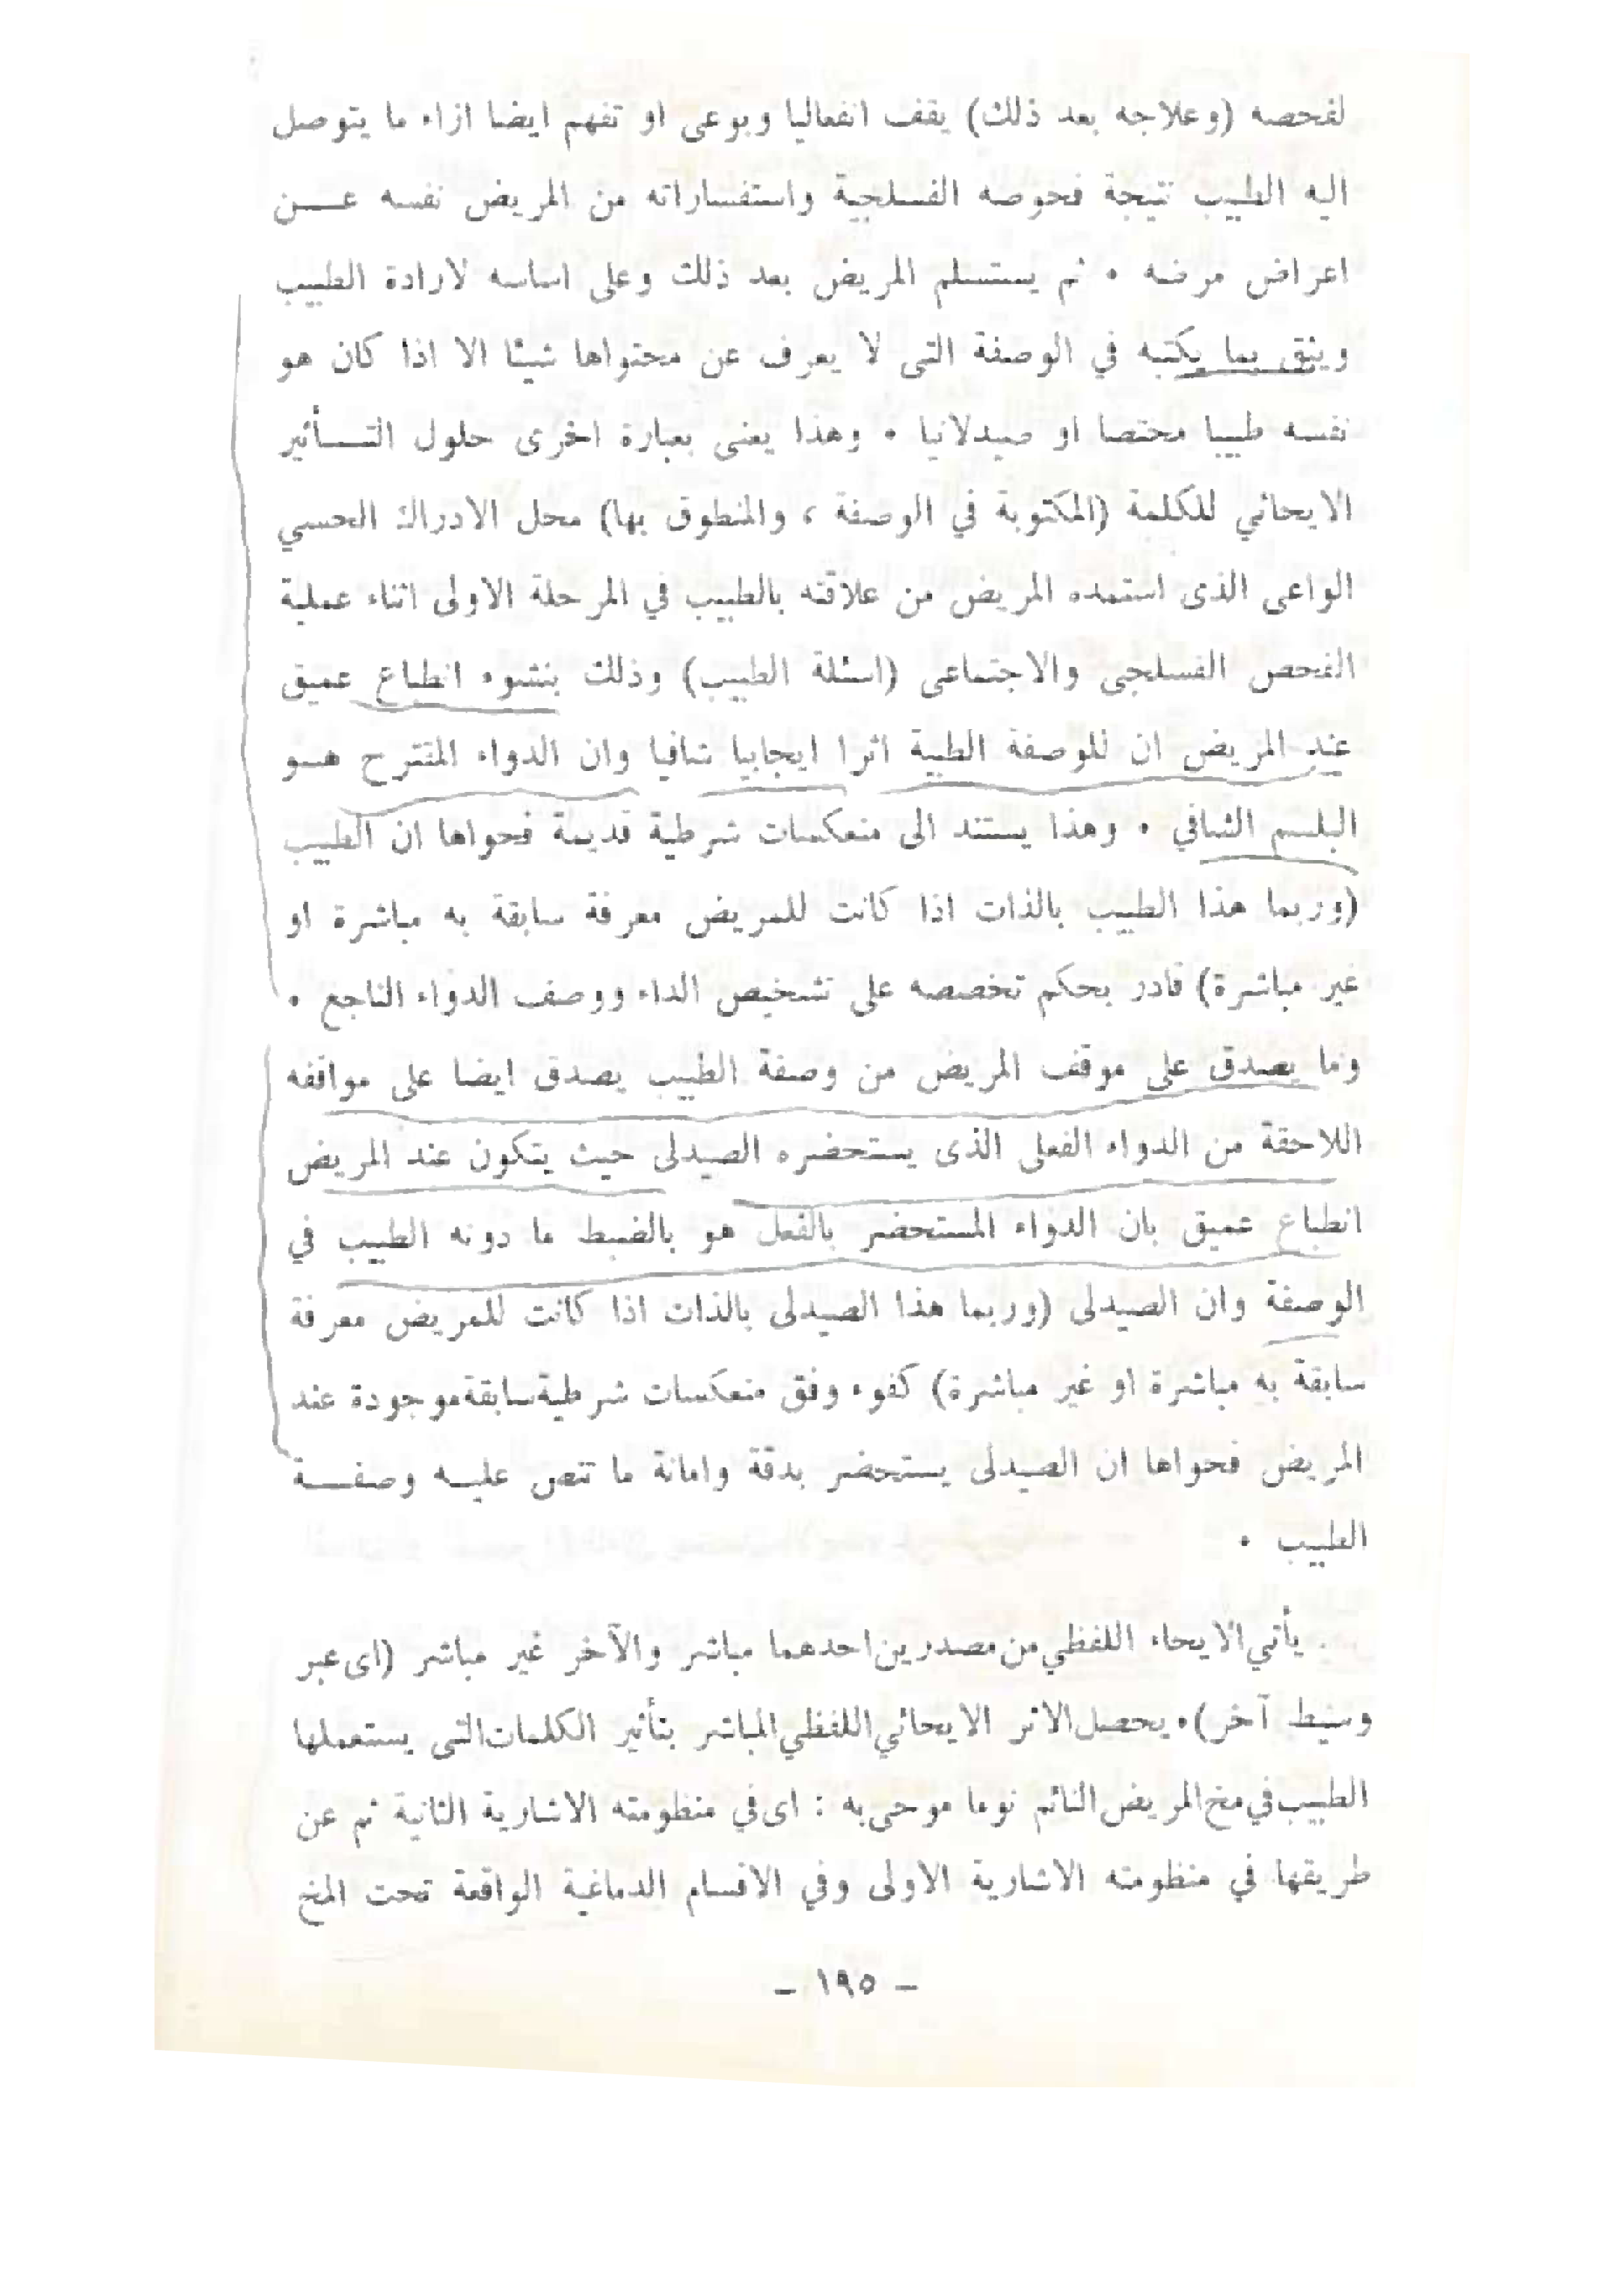 لفحصه (وعلاجه بعد ذلك) يقف انفعاليا وبوعى او تفهم ايضا ازاء ما يتوصل
اليه الطبيب نتيجة فحوصه الفسلجية واستفساراته من المريض نفسه عـــن
اعراض مرضه ٠ ثم يستسلم المريض بعد ذلك وعلى اساسه لارادة الطبيب
ويثق بما يكتبه في الوصفة التى لا يعرف عن محتواها شيئا الا اذا كان هو
نفسه طبيبا مختصا او صيدلانيا ٠ وهذا يعنى بعبارة اخرى حلول التـــأثير
الايحائي للكلمة (المكتوبة في الوصفة ، والمنطوق بها) محل الادراك الحسي
الواعى الذى استمده المريض من علاقته بالطبيب في المرحلة الاولى اثناء عملية
الفحص الفسلجى والاجتماعى (اسئلة الطبيب) وذلك بنشوء انطباع عميق
عند المريض ان للوصفة الطبية اثرا ايجابيا شافيا وان الدواء المقترح هـــو
البلسم الشافي ٠ وهذا يستند الى منعكسات شرطية قديمة فحواها ان الطبيب
(وربما هذا الطبيب بالذات اذا كانت للمريض معرفة سابقة به مباشرة او
غير مباشرة) قادر بحكم تخصصه على تشخيص الداء ووصف الدواء الناجع ٠
وما يصدق على موقف المريض من وصفة الطبيب يصدق ايضا على مواقفه
اللاحقة من الدواء الفعلى الذى يستحضره الصيدلى حيث يتكون عند المريض
انطباع عميق بان الدواء المستحضر بالفعل هو بالضبط ما دونه الطبيب في
الوصفة وان الصيدلى (وربما هذا الصيدلى بالذات اذا كانت للمريض معرفة
سابقة به مباشرة او غير مباشرة) كفوء وفق منعكسات شرطية سابقة موجودة عند
المريض فحواها ان الصيدلى يستحضر بدقة وامانة ما تنص عليـــه وصفـــــة
الطبيب ٠
يأتي الايحاء اللفظي من مصدرين احدهما مباشر والآخر غير مباشر (اى عبر
وسيط آخر)٠ يحصل الاثر الايحائي اللفظي المباشر بتأثير الكلمات التى يستعملها
الطبيب في مخ المريض النائم نوما موحى به : اى في منظومته الاشارية الثانية ثم عن
طريقها في منظومته الاشارية الاولى وفي الاقسام الدماغية الواقعة تحت المخ
– ١٩٥ –